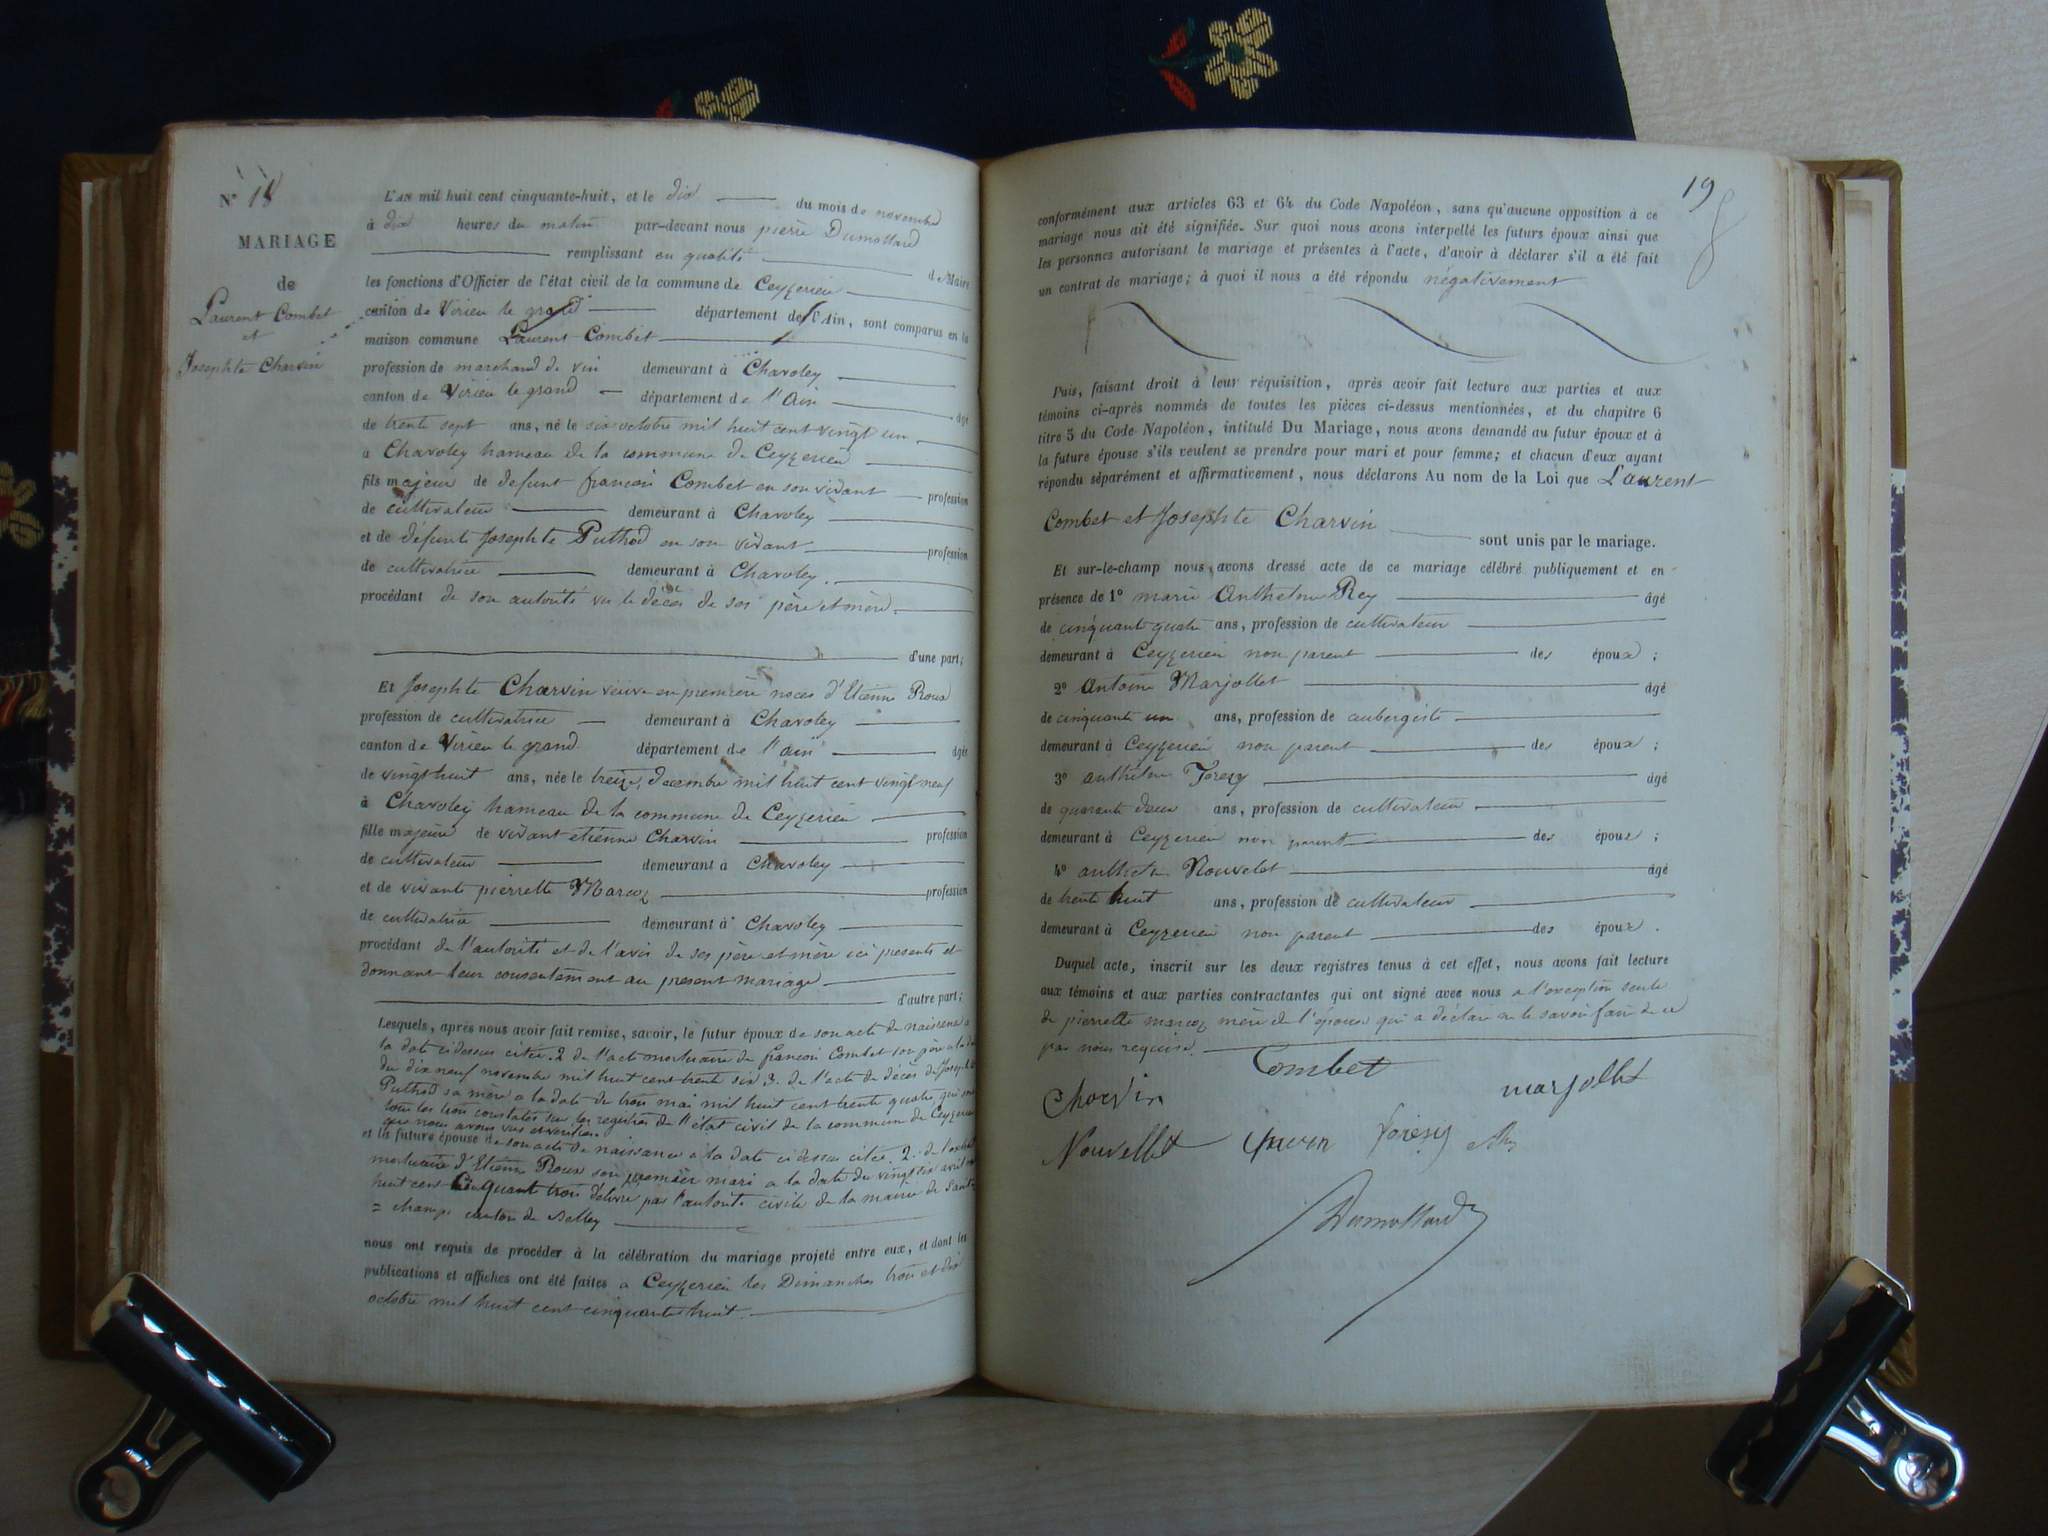 Nº 18
MARIAGE
de
Laurent Combet
et
Josephte Charvin
L'AN mil huit cent cinquante-huit, et le dix du mois de novembre
à dix heures du matin par-devant nous pierre Dumollard
remplissant en qualité de Maire
les fonctions d'Officier de l'état civil de la commune de Ceyzerieu
canton de Virieu le grand département de l'Ain, sont comparus en la
maison commune Laurent Combet
profession de marchand de vin demeurant à Chavoley
canton de Virieu le grand département de l'Ain âgé
de trente sept ans, né le six octobre mil huit cent vingt un
a Chavoley hameau de la commune de Ceyzerieu
fils majeur de defunt francois Combet en son vivant profession
de cultivateur demeurant à Chavoley
et de défunte Josephte Puthod en son vivant profession
de cultivatrice demeurant à Chavoley.
procédant de son autorité vu le décès de ses père et mère.
d'une part;
Et Josephte Charvin veuve en première noces d'Etienne Roux
profession de cultivatrice demeurant à Chavoley
canton de Virieu le grand département de l'ain âgée
de vingt huit ans, née le treize decembre mil huit cent vingt neuf
à Chavoley hameau de la commune de Ceyzerieu
fille majeure de vivant etienne Charvin profession
de cultivateur demeurant à Chavoley
et de vivante pierrette Marcoz profession
de cultivatrice demeurant à Chavoley
procédant de l'autorité et de l'avis de ses père et mère ici presents et
donnant leur consentement au present mariage
d'autre part;
Lesquels, après nous avoir fait remise, savoir, le futur époux de son acte de naissance a
la date ci dessus citée. 2 de l'acte mortuaire de francois Combet son père a la date
du dix neuf novembre mil huit cent trente six 3. de l'acte de décès de Josephte
Puthod sa mère a la date du trois mai mil huit cent trente quatre, qui sont
tous les trois constatés sur les registres de l'état civil de la commune de Ceyzerieu
que nous avons vus et verifiés.
et la future épouse de son acte de naissance a la date ci dessus citée. 2. de l'extrait
mortuaire d'Etienne Roux son premier mari a la date du vingt six avril mil
huit cent cinquante trois délivré par l'autorité civile de la mairie de
= champ canton de Belley
nous ont requis de procéder à la célébration du mariage projeté entre eux, et dont les
publications et affiches ont été faites a Ceyzerieu les Dimanches trois et dix
octobre mil huit cent cinquante huit.
19
conformément aux articles 63 et 64 du Code Napoléon, sans qu'aucune opposition à ce
mariage nous ait été signifiée. Sur quoi nous avons interpellé les futurs époux ainsi que
les personnes autorisant le mariage et présentes à l'acte, d'avoir à déclarer s'il a été fait
un contrat de mariage; à quoi il nous a été répondu négativement
Puis, faisant droit à leur réquisition, après avoir fait lecture aux parties et aux
témoins ci-après nommés de toutes les pièces ci-dessus mentionnées, et du chapitre 6
titre 5 du Code Napoléon, intitulé Du Mariage, nous avons demandé au futur époux et à
la future épouse s'ils veulent se prendre pour mari et pour femme; et chacun d'eux ayant
répondu séparément et affirmativement, nous déclarons Au nom de la Loi que Laurent
Combet et Josephte Charvin
sont unis par le mariage.
Et sur-le-champ nous avons dressé acte de ce mariage célébré publiquement et en
présence de 1º marie Anthelme Rey âgé
de cinquante quatre ans, profession de cultivateur
demeurant à Ceyzerieu non parent des époux ;
2º Antoine Marjollet âgé
de cinquante un ans, profession de aubergiste
demeurant à Ceyzerieu non parent des époux ;
3º anthelme âgé
de quarante deux ans, profession de cultivateur
demeurant à Ceyzerieu non parent des époux ;
4º Nouvelet âgé
de trente huit ans, profession de cultivateur
demeurant à Ceyzerieu non parent des époux .
Duquel acte, inscrit sur les deux registres tenus à cet effet, nous avons fait lecture
aux témoins et aux parties contractantes qui ont signé avec nous a l'exception seule
de pierrette marcoz mère de l'épouse qui a déclaré ne le savoir faire de ce
par nous requise.
Combet
Charvin
marjollet
Nouvellet
Dumollard